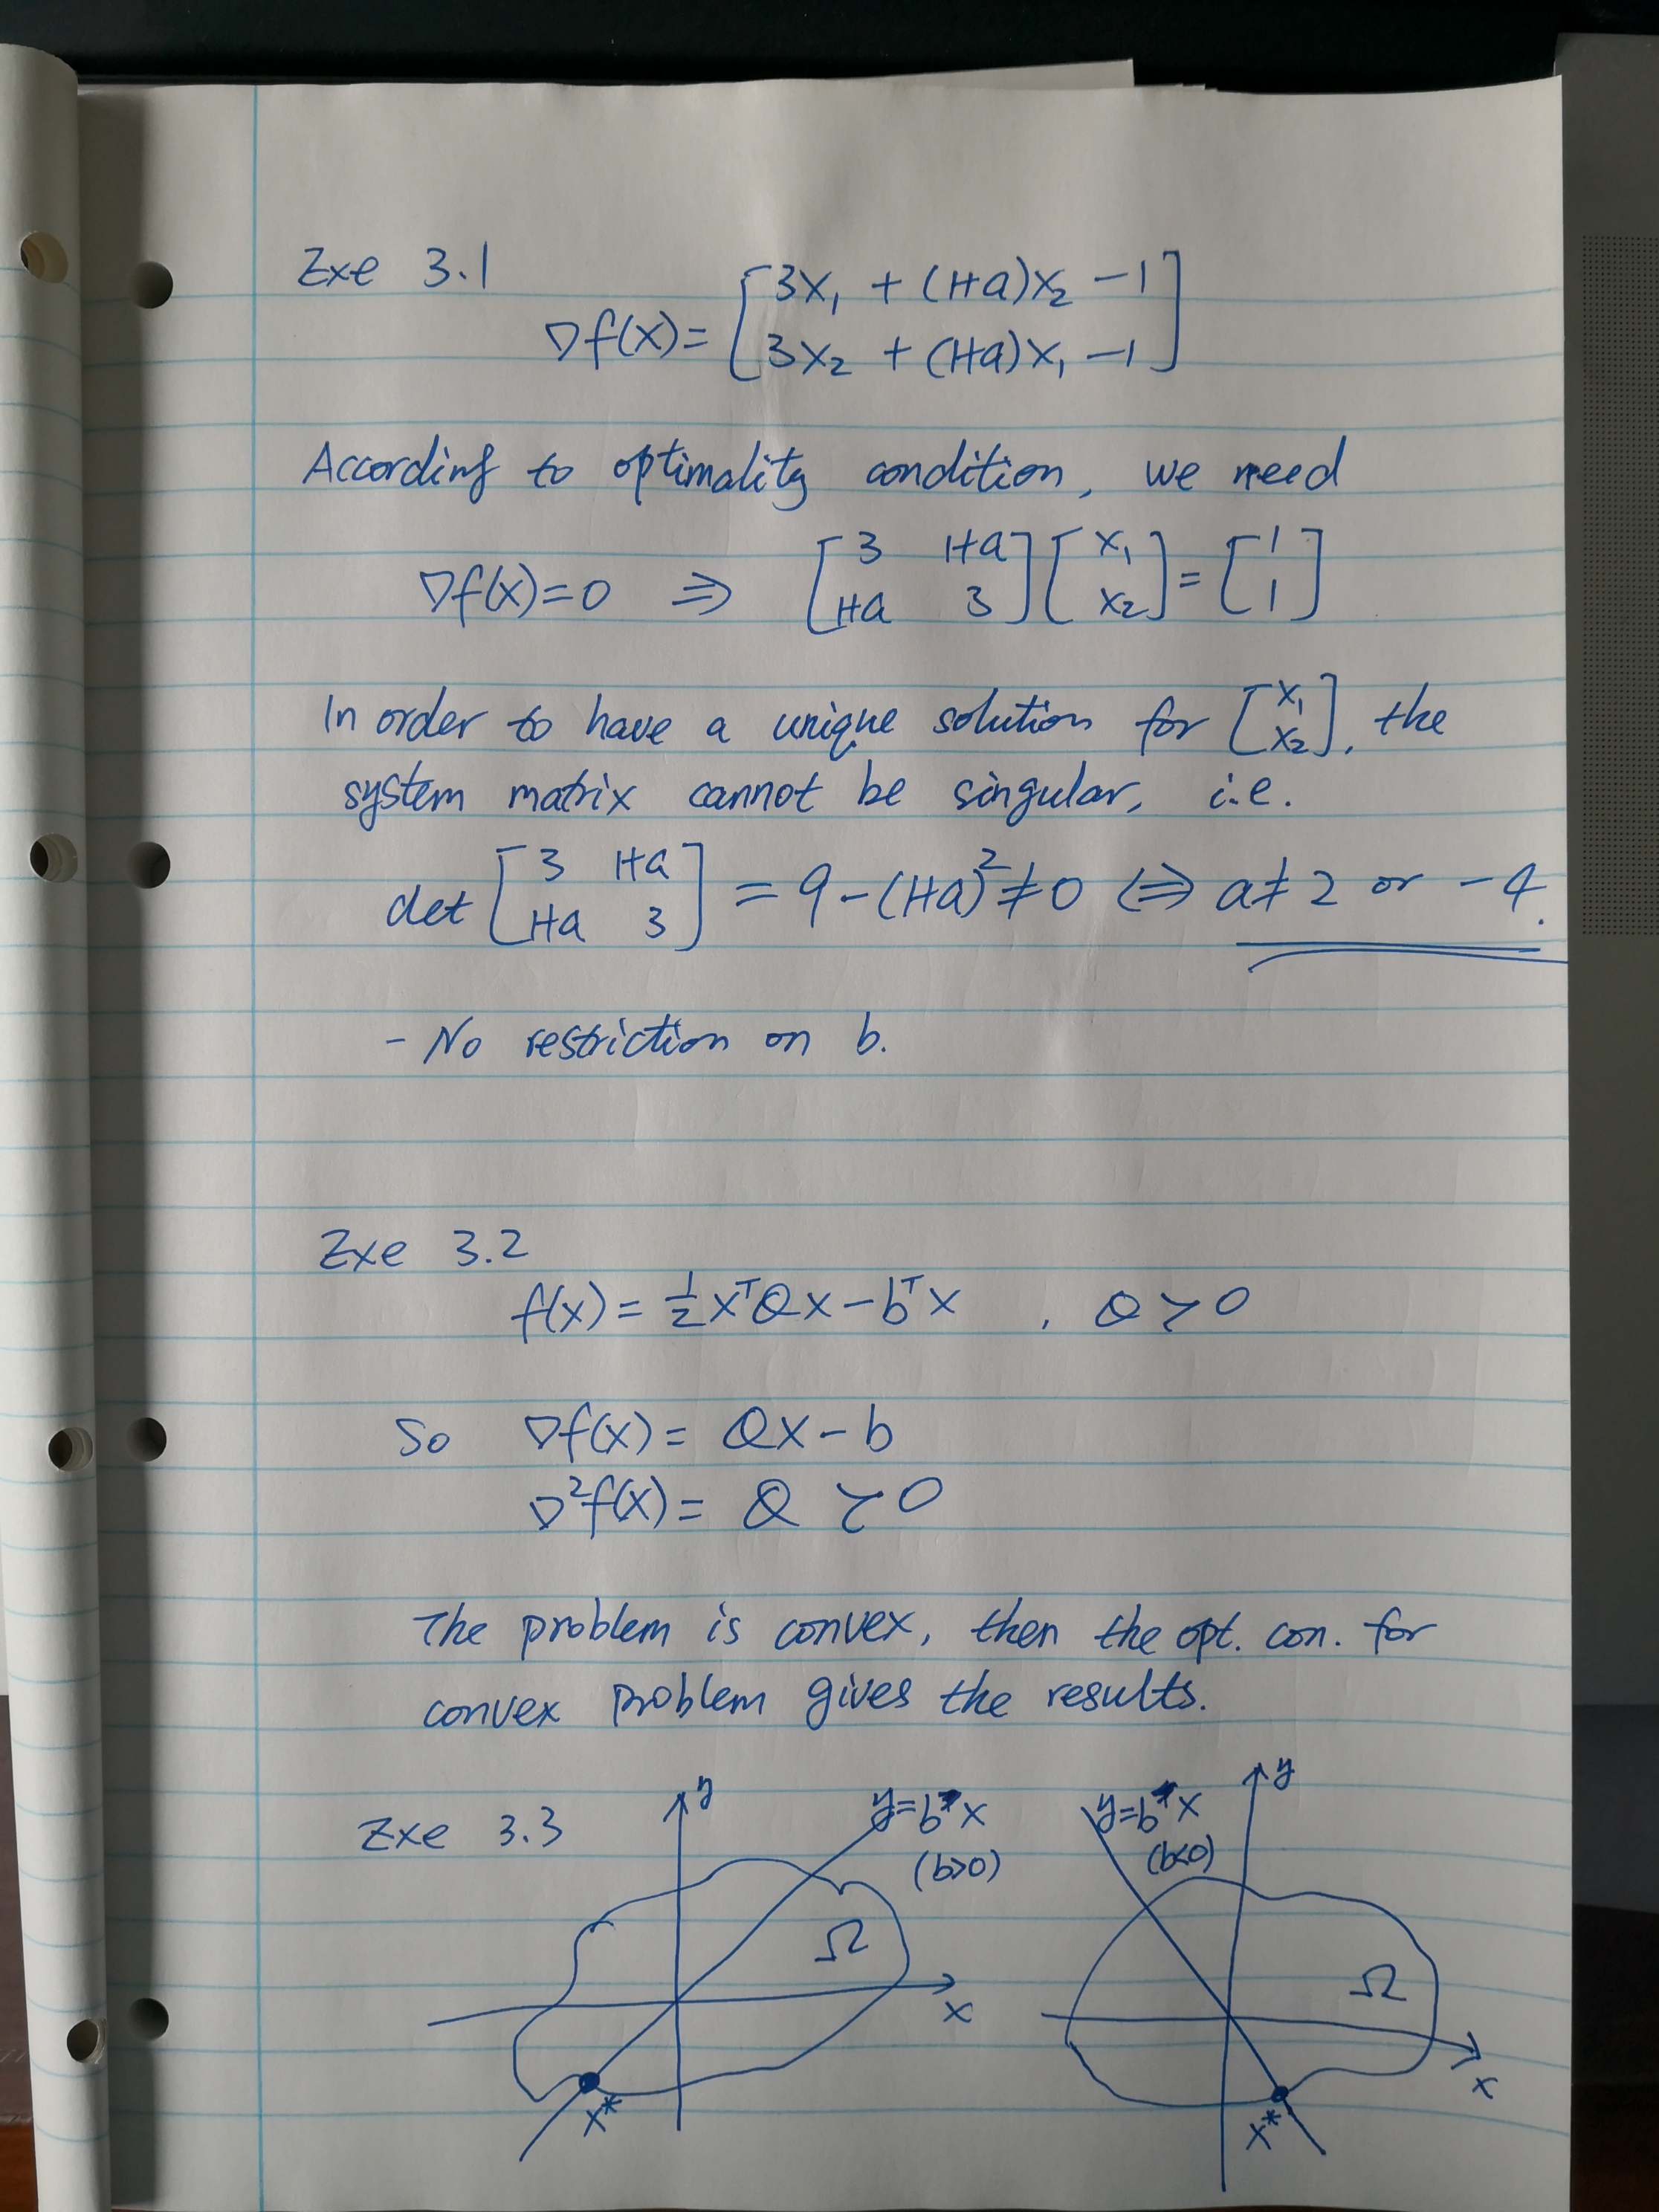 Exe 3.1
∇f(x) = [ 3x₁ + (1+a)x₂ - 1
3x₂ + (1+a)x₁ - 1 ]
According to optimality condition, we need
∇f(x)=0 ⇒ [ 3 1+a ; 1+a 3 ] [ x₁ ; x₂ ] = [ 1 ; 1 ]
In order to have a unique solution for [ x₁ ; x₂ ], the
system matrix cannot be singular, i.e.
det [ 3 1+a ; 1+a 3 ] = 9-(1+a)² ≠ 0 ⇔ a≠2 or -4.
- No restriction on b.
Exe 3.2
f(x) = ½ xᵀQx - bᵀx , Q ≻ 0
So ∇f(x) = Qx - b
∇²f(x) = Q ≻ 0
The problem is convex, then the opt. con. for
convex problem gives the results.
Exe 3.3
y
y=b x
(b>0)
Ω
x
x*
y
y=b x
(b<0)
Ω
x
x*